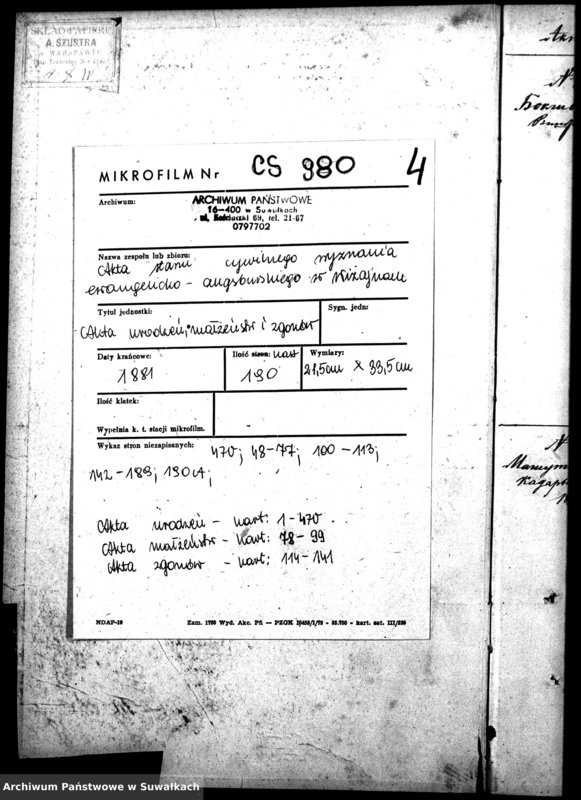 SKŁAD PAPIERU
A. SZUSTRA
w WARSZAWIE
MIKROFILM Nr CS 980 4
Archiwum:
ARCHIWUM PAŃSTWOWE
16-400 w Suwałkach
ul. Kościuszki 69, tel. 21-67
0797702
Nazwa zespołu lub zbioru:
Akta stanu cywilnego wyznania
ewangelicko-augsburskiego w Wiżajnach
Tytuł jednostki:
Sygn. jedn:
Akta urodzeń, małżeństw i zgonów
Daty krańcowe:
1881
Ilość stron: kart
190
Wymiary:
21,5cm x 33,5cm
Ilość klatek:
Wypełnia k. t. stacji mikrofilm.
Wykaz stron niezapisanych:
47v; 48-77; 100-113;
142-189; 190A;
Akta urodzeń - kart: 1-47v
Akta małżeństw - kart: 78-99
Akta zgonów - kart: 114-141
NDAP-10
Zam. 1760 Wyd. Akc. Pń — PZGK
kart. sat. III/220
Archiwum Państwowe w Suwałkach